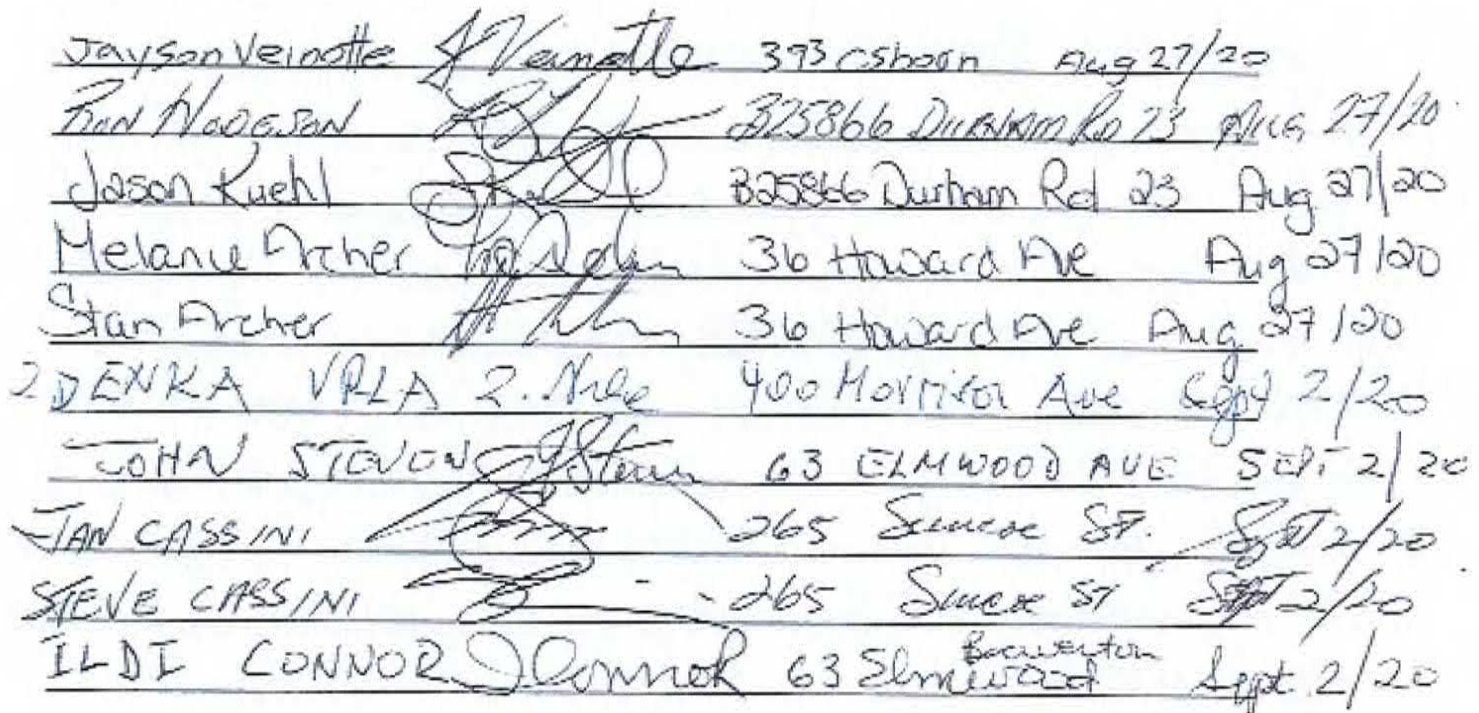 Jayson Veinotte J Veinotte 393 Osborn Aug 27/20
RON HODGSON B25866 DURHAM RD 23 AUG 27/20
Jason Kuehl B25866 Durham Rd 23 Aug 27/20
Melanie Archer 36 Howard Ave Aug 27/20
Stan Archer 36 Howard Ave Aug 27/20
ZDENKA VRLA Z. Vrla 400 Morrison Ave Sept 2/20
JOHN STEVENS 63 ELMWOOD AVE SEPT 2/20
JAN CASSINI 265 Simcoe ST. Sept 2/20
STEVE CASSINI 265 Simcoe ST Sept 2/20
ILDI CONNOR I Connor 63 Elmwood Beaverton Sept 2/20